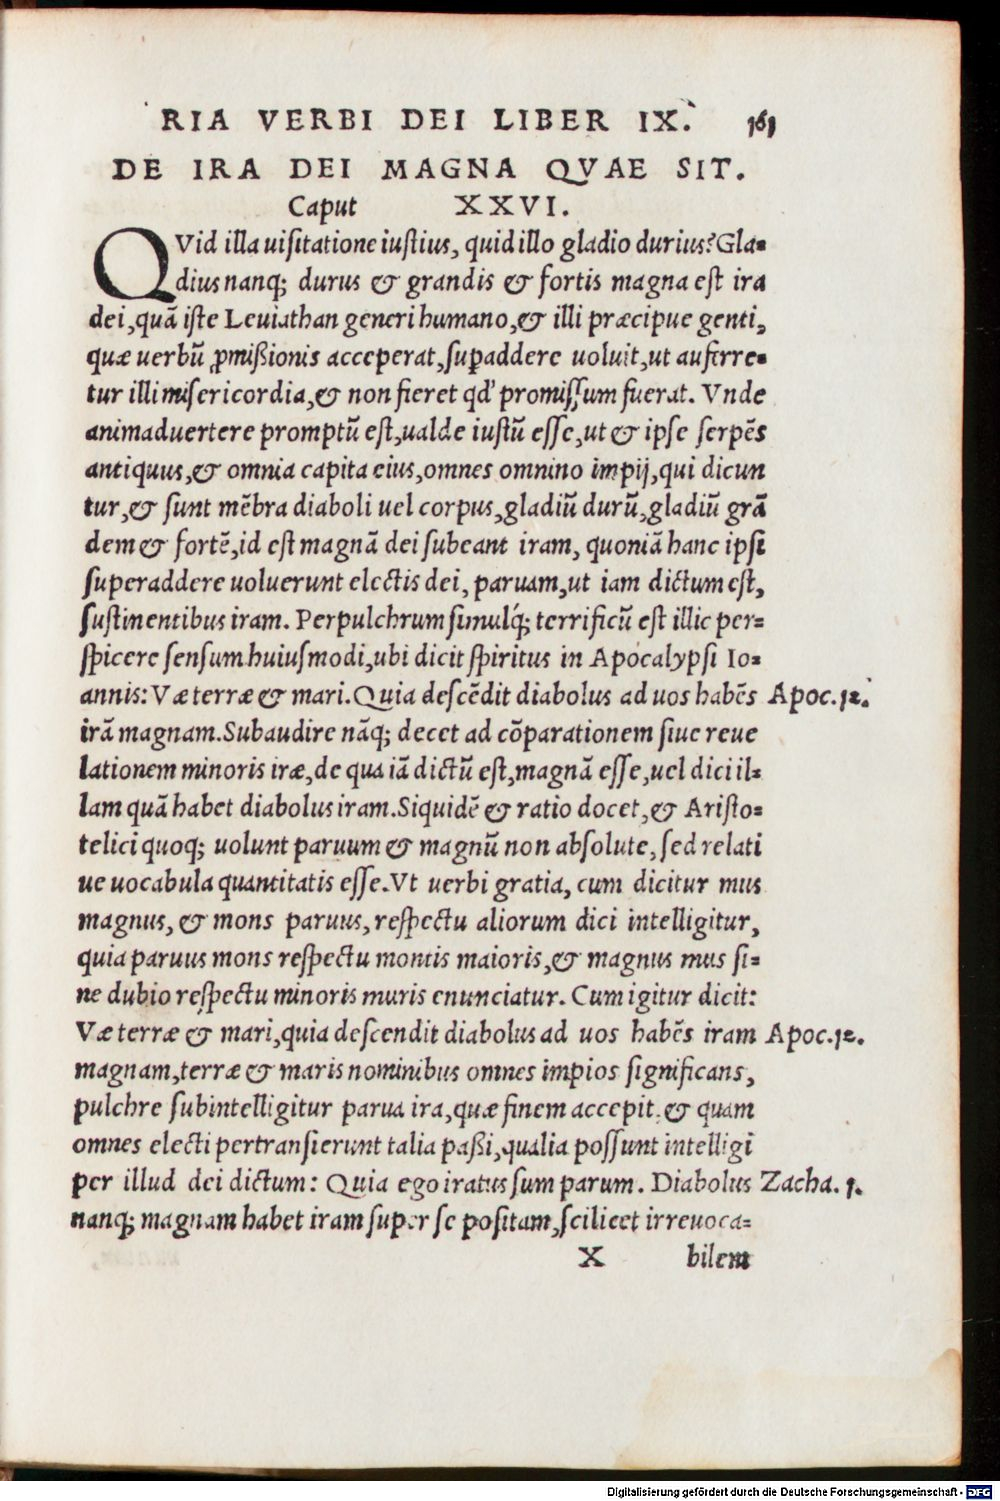 RIA VERBI DEI LIBER IX. 161
DE IRA DEI MAGNA QVAE SIT.
Caput XXVI.
QVid illa uisitatione iustius, quid illo gladio durius? Gla-
dius nanq; durus & grandis & fortis magna est ira
dei, quã iste Leuiathan generi humano, & illi præcipue genti,
quæ uerbũ ꝓmißionis acceperat, supaddere uoluit, ut auferre-
tur illi misericordia, & non fieret qd' promissum fuerat. Vnde
animaduertere promptũ est, ualde iustũ esse, ut & ipse serpẽs
antiquus, & omnia capita eius, omnes omnino impij, qui dicun
tur, & sunt mẽbra diaboli uel corpus, gladiũ durũ, gladiũ grã
dem & fortẽ, id est magnã dei subeant iram, quoniã hanc ipsi
superaddere uoluerunt electis dei, paruam, ut iam dictum est,
sustinentibus iram. Perpulchrum simulq́; terrificũ est illic per-
spicere sensum huiusmodi, ubi dicit spiritus in Apocalypsi Io-
annis: Væ terræ & mari. Quia descẽdit diabolus ad uos habẽs Apoc. 12.
irã magnam. Subaudire nãq; decet ad cõparationem siue reue
lationem minoris iræ, de qua iã dictũ est, magnã esse, uel dici il-
lam quã habet diabolus iram. Siquidẽ & ratio docet, & Aristo-
telici quoq; uolunt paruum & magnũ non absolute, sed relati
ue uocabula quantitatis esse. Vt uerbi gratia, cum dicitur mus
magnus, & mons paruus, respectu aliorum dici intelligitur,
quia paruus mons respectu montis maioris, & magnus mus si-
ne dubio respectu minoris muris enunciatur. Cum igitur dicit:
Væ terræ & mari, quia descendit diabolus ad uos habẽs iram Apoc. 12.
magnam, terræ & maris nominibus omnes impios significans,
pulchre subintelligitur parua ira, quæ finem accepit. & quam
omnes electi pertransierunt talia paßi, qualia possunt intelligi
per illud dei dictum: Quia ego iratus sum parum. Diabolus Zacha. 1.
nanq; magnam habet iram super se positam, scilicet irreuoca-
X bilem
Digitalisierung gefördert durch die Deutsche Forschungsgemeinschaft - DFG